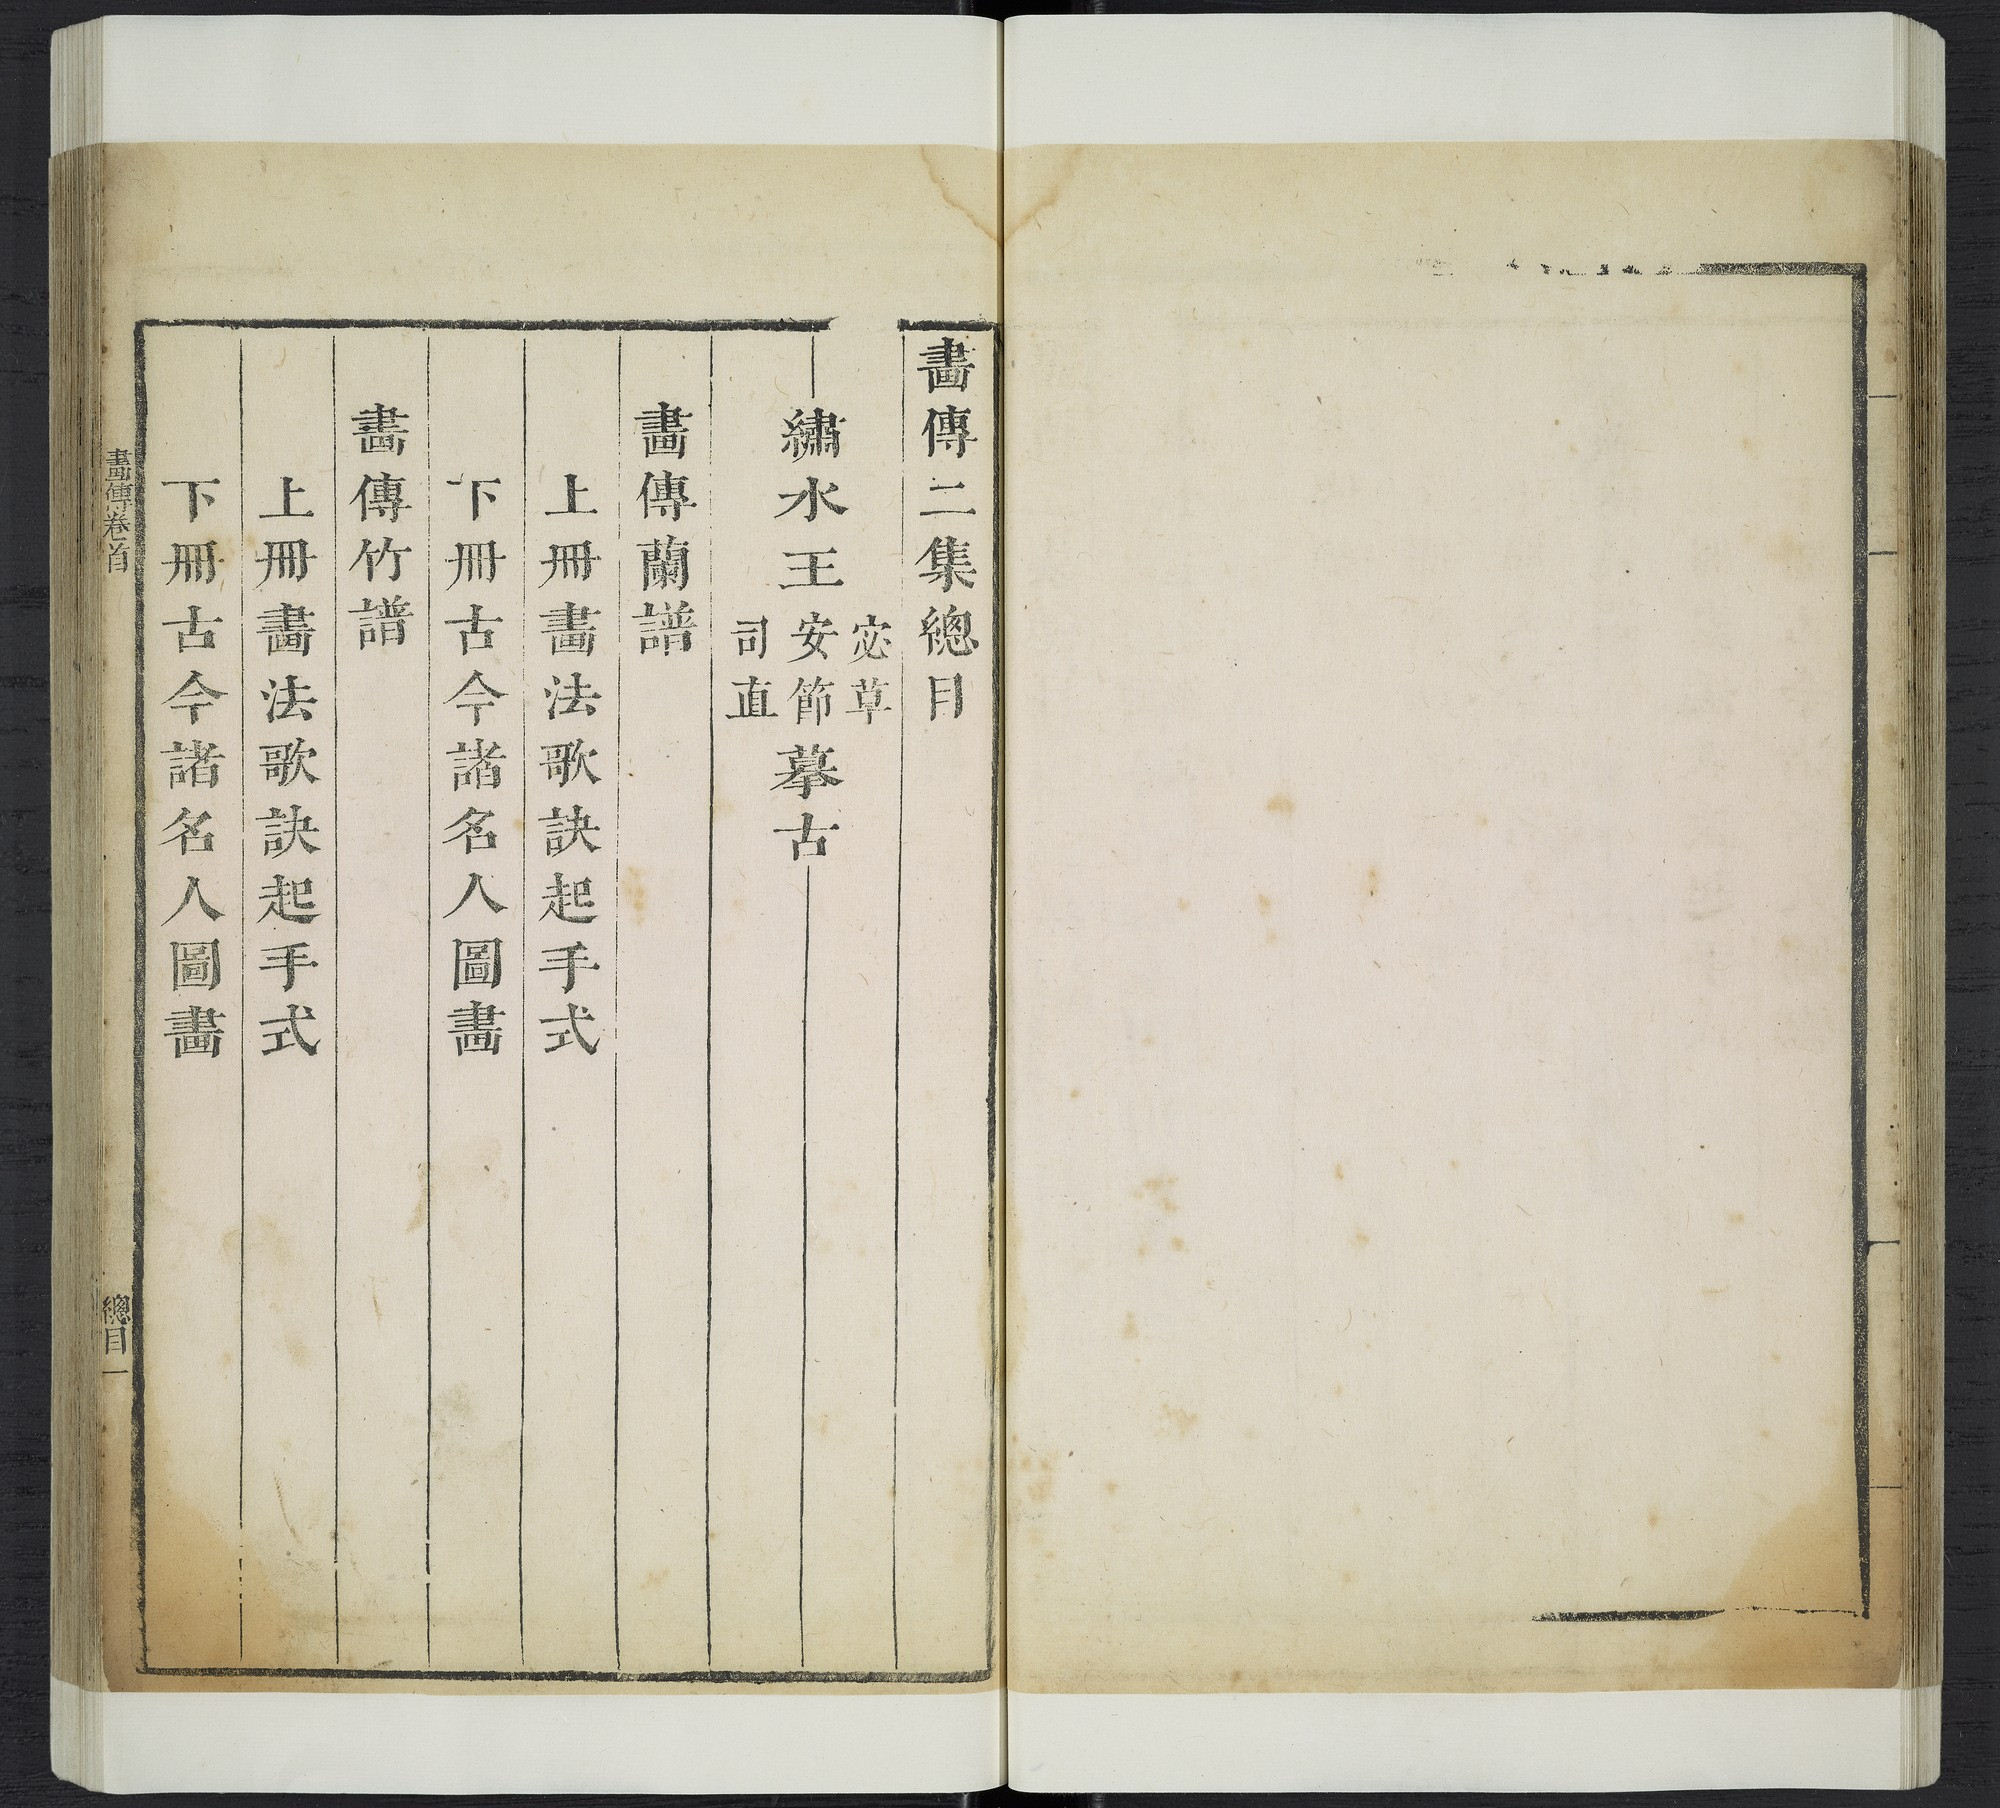 畫傳二集總目
繡水王宓草安節司直摹古
畫傳蘭譜
上冊畫法歌訣起手式
下冊古今諸名人圖畫
畫傳竹譜
上冊畫法歌訣起手式
下冊古今諸名人圖畫
畫傳卷首
總目一